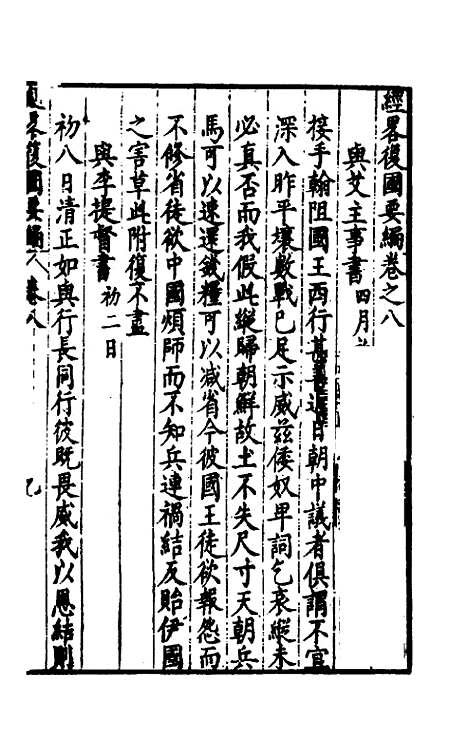 經畧復國要編卷之八
與艾主事書 四月
接手翰阻國王西行甚善近日朝中議者俱謂不宜
深入昨平壤數戰已足示威茲倭奴卑詞乞哀縱未
必真否而我假此縱歸朝鮮故土不失尺寸天朝兵
馬可以速還錢糧可以減省今彼國王徒欲報怨而
不修省徒欲中國煩師而不知兵連禍結反貽伊國
之害草此附復不盡
與李提督書 初二日
初八日清正如與行長同行彼既畏威我以恩結則
畧復國要編 卷八